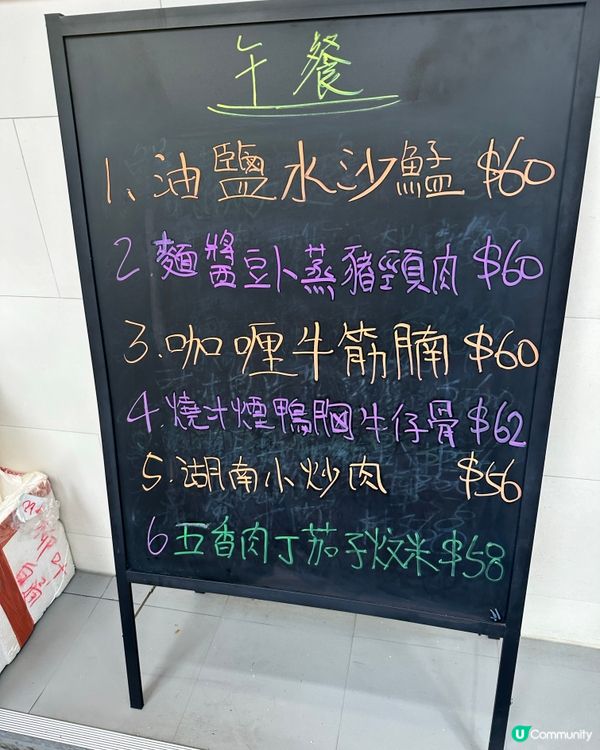 午餐
1、油鹽水沙鯭 $60
2.麵醬豆卜蒸豬頸肉 $60
3.咖喱牛筋腩 $60
4.燒汁煙鴨胸牛仔骨 $62
5.湖南小炒肉 $56
6 五香肉丁茄子炆米 $58
U Community